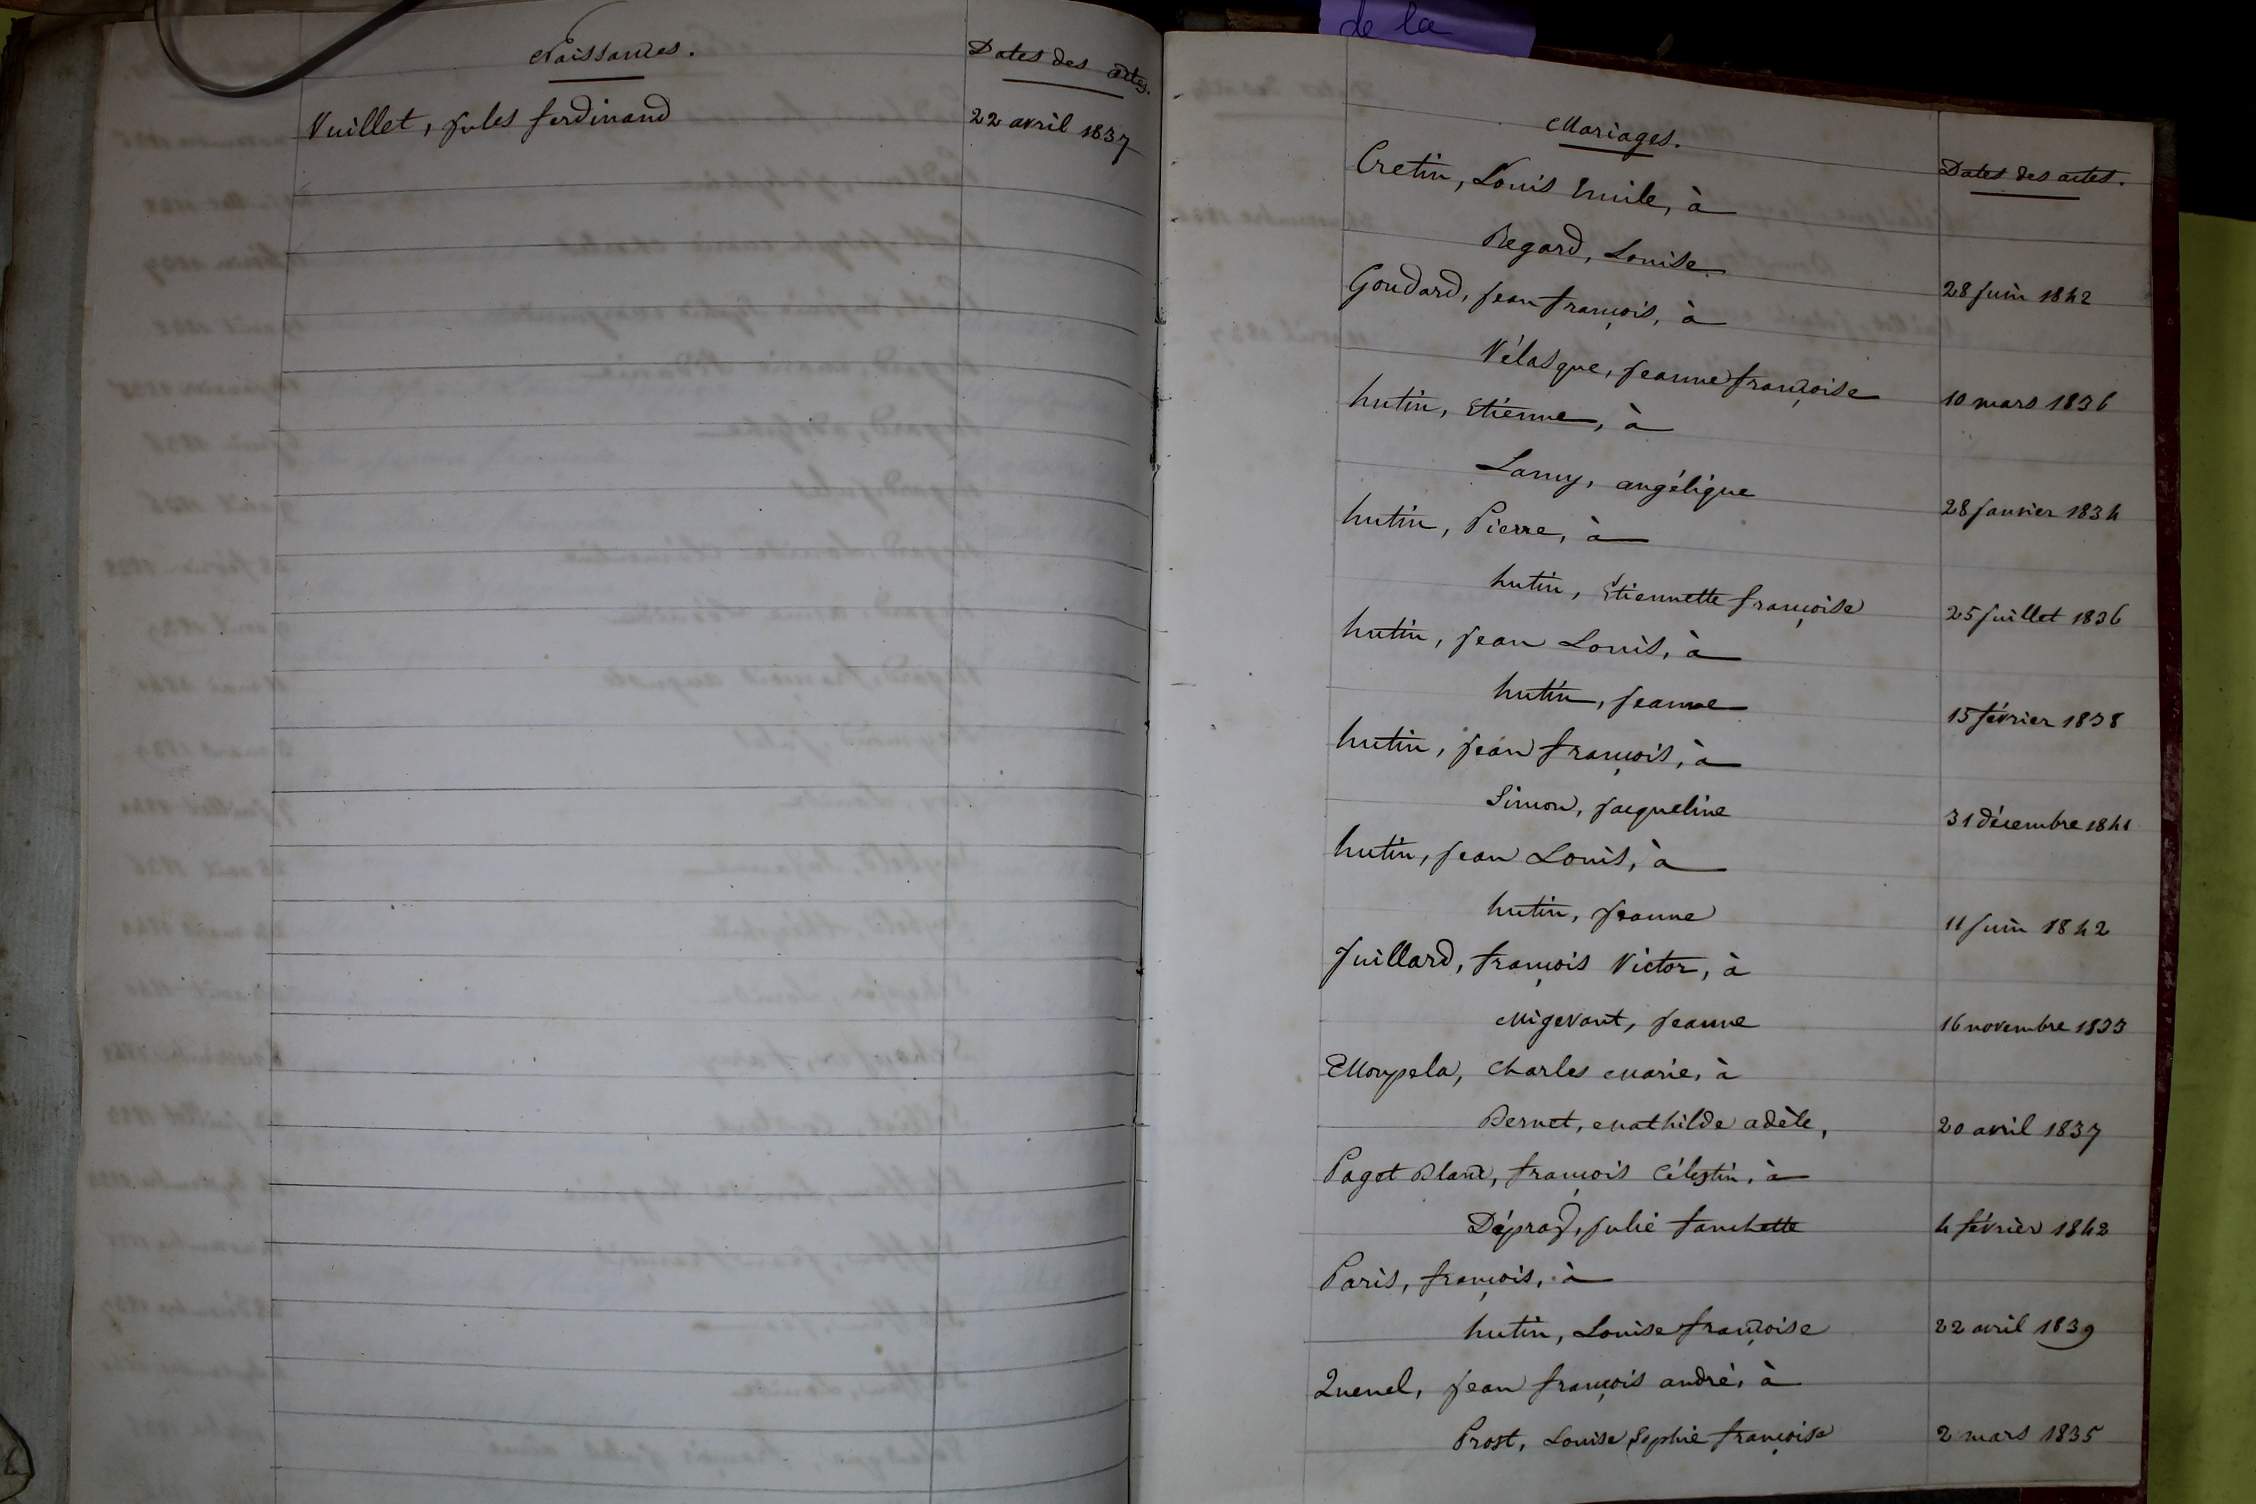 de la
Naissances.
Dates des actes.
Vuillet, Jules ferdinand
22 avril 1837
Mariages.
Dates des actes.
Cretin, Louis Emile, à
Regard, Louise
28 Juin 1842
Goudard, Jean françois, à
Vélasque, Jeanne françoise
10 mars 1836
hutin, Etienne, à
Lamy, angélique
28 Janvier 1834
hutin, Pierre, à
hutin, Etiennette françoise
25 Juillet 1836
hutin, Jean Louis, à
hutin, Jeanne
15 février 1838
hutin, Jean françois, à
Simon, Jacqueline
31 décembre 1841
hutin, Jean Louis, à
hutin, Jeanne
11 Juin 1842
Juillard, françois Victor, à
Migevant, Jeanne
16 novembre 1833
Monpela, Charles Marie, à
Bernet, Mathilde adèle,
20 avril 1837
Paget Blanc, françois Célestin, à
Dépraz, Julie fanchette
4 février 1842
Paris, françois, à
hutin, Louise françoise
22 avril 1839
Quenel, Jean françois andré, à
Prost, Louise Sophie françoise
2 mars 1835